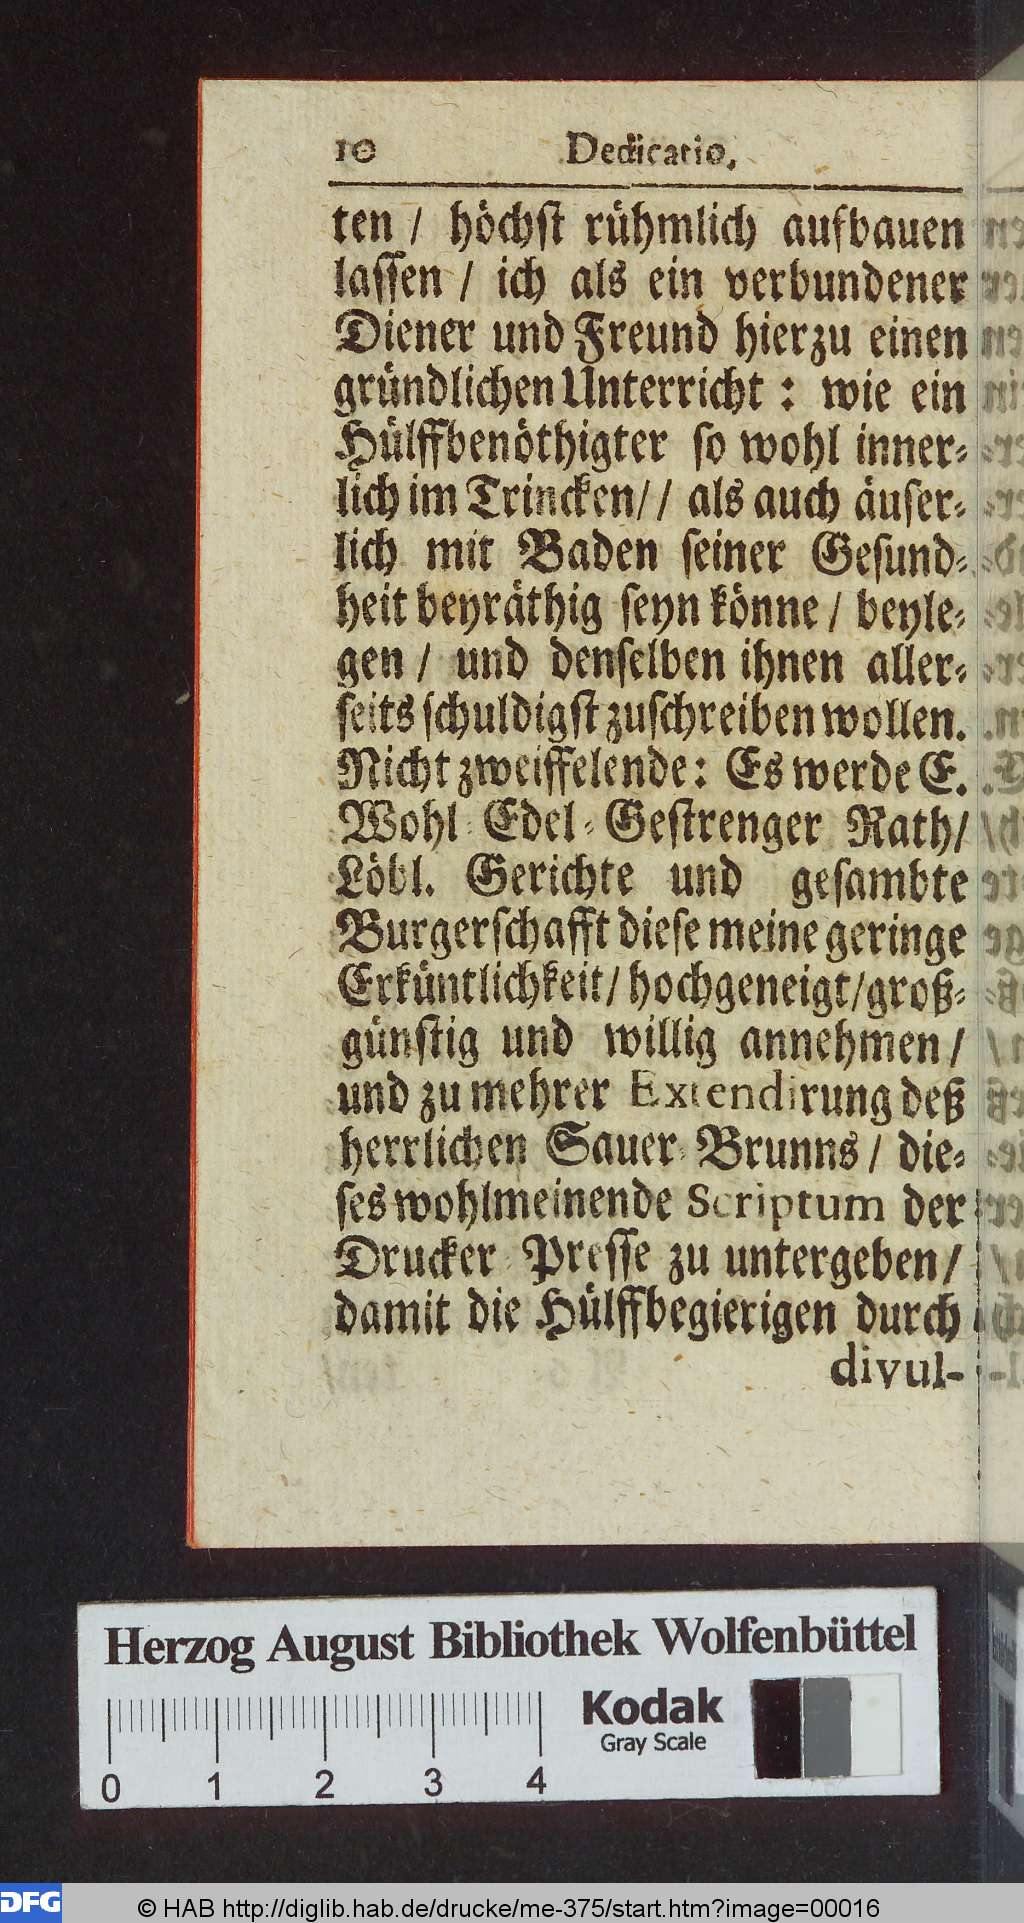 10 Dedicatio.
ten / höchst rühmlich aufbauen
lassen / ich als ein verbundener
Diener und Freund hierzu einen
gründlichen Unterricht : wie ein
Hülffbenöthigter so wohl inner-
lich im Trincken// als auch äuser-
lich mit Baden seiner Gesund-
heit beyräthig seyn könne / beyle-
gen / und denselben ihnen aller-
seits schuldigst zuschreiben wollen.
Nicht zweiffelende: Es werde E.
Wohl Edel-Gestrenger Rath/
Löbl. Gerichte und gesambte
Burgerschafft diese meine geringe
Erküntlichkeit/ hochgeneigt/groß-
günstig und willig annehmen /
und zu mehrer Extendirung deß
herrlichen Sauer-Brunns / die-
ses wohlmeinende Scriptum der
Drucker-Presse zu untergeben/
damit die Hülffbegierigen durch
divul-
Herzog August Bibliothek Wolfenbüttel
Kodak
Gray Scale
0 1 2 3 4
DFG © HAB http://diglib.hab.de/drucke/me-375/start.htm?image=00016